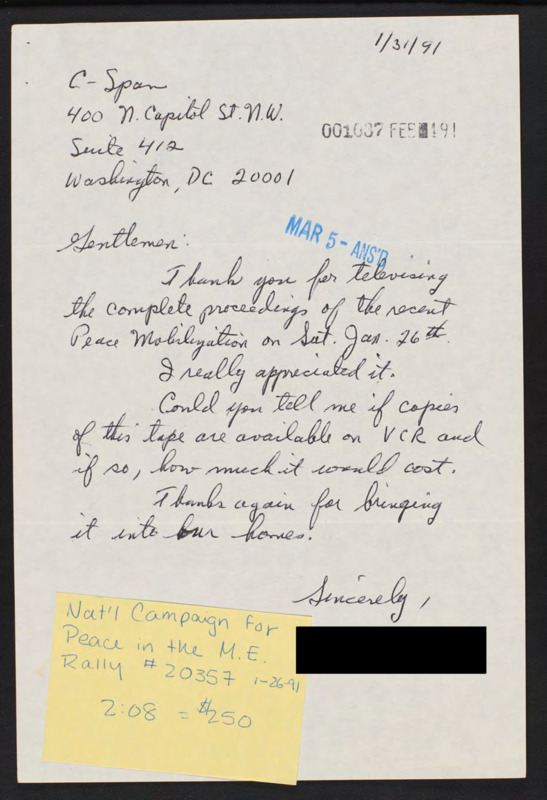 1/31/91
C-Span
400 N. Capitol St. N.W.
Suite 412
Washington, DC 20001
001037 FEB 491
MAR 5 - ANS'D
Gentlemen:
Thank you for televising
the complete proceedings of the recent
Peace Mobilization on Sat. Jan. 26th.
I really appreciated it.
Could you tell me if copies
of this tape are available on VCR and
if so, how much it would cost.
Thanks again for bringing
it into our homes.
Sincerely,
Nat'l Campaign for
Peace in the M.E.
Rally # 20357 1-26-91
2:08 = $250